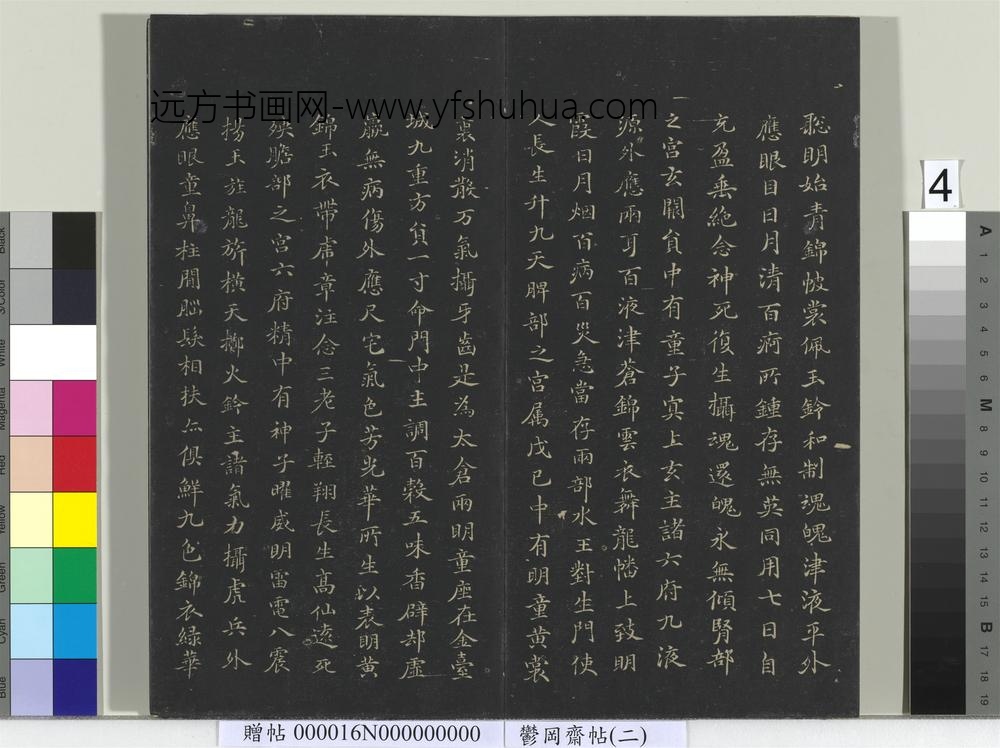 聡明始青錦帔裳佩玉鈴和制魂魄津液平外
應眼目日月清百痾所鍾存無英同用七日自
充盈垂絶念神死復生攝魂還魄永無傾腎部
之宮玄闕貟中有童子冥上玄主諸六府九液
源外應兩耳百液津蒼錦雲衣舞龍幡上致明
霞日月烟百病百災急當存兩部水王對生門使
人長生升九天脾部之宮属戊己中有明童黄裳
裏消散万氣攝牙齒是為太倉兩明童座在金臺
城九重方貟一寸命門中主調百榖五味香辟却虛
羸無病傷外應尺宅氣色芳光華所生以表明黄
錦玉衣帶席章注念三老子輕翔長生髙仙逺死
殃膽部之宮六府精中有神子曜威明雷電八震
揚玉旌龍旂横天擲火鈴主諸氣力攝虎兵外
應眼童鼻柱間腦髮相扶亦俱鮮九色錦衣緑華
远方书画网-www.yfshuhua.com
4
贈帖 000016N000000000
鬱岡齋帖(二)
Black
3/Color
White
Magenta
Red
Yellow
Green
Cyan
Blue
A
1
2
3
4
5
6
M
8
9
10
11
12
13
14
15
B
17
18
19